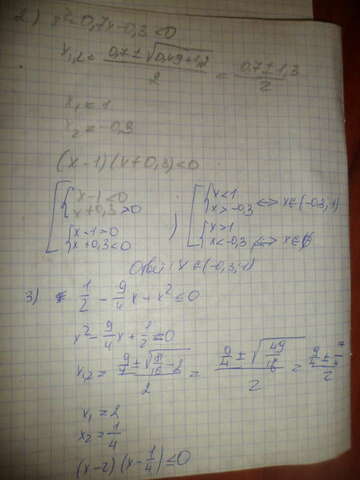 2) x² - 0,7x - 0,3 < 0
x₁,₂ = (0,7 ± √(0,49 + 1,2)) / 2 = (0,7 ± 1,3) / 2
x₁ = 1
x₂ = -0,3
(x-1)(x+0,3)<0
[ { x-1<0 ; ) [ { x<1
x+0,3>0 x>-0,3 <=> x∈(-0,3;1)
{ x-1>0 { x>1
x+0,3<0 x<-0,3 <=> x∈∅
Ответ: x∈(-0,3;1)
3) 1/2 - 9/4 x + x² ≤ 0
x² - 9/4 x + 1/2 ≤ 0
x₁,₂ = (9/4 ± √(81/16 - 2)) / 2 = (9/4 ± √(49/16)) / 2 = (9/4 ± 7/4) / 2
x₁ = 2
x₂ = 1/4
(x-2)(x-1/4) ≤ 0